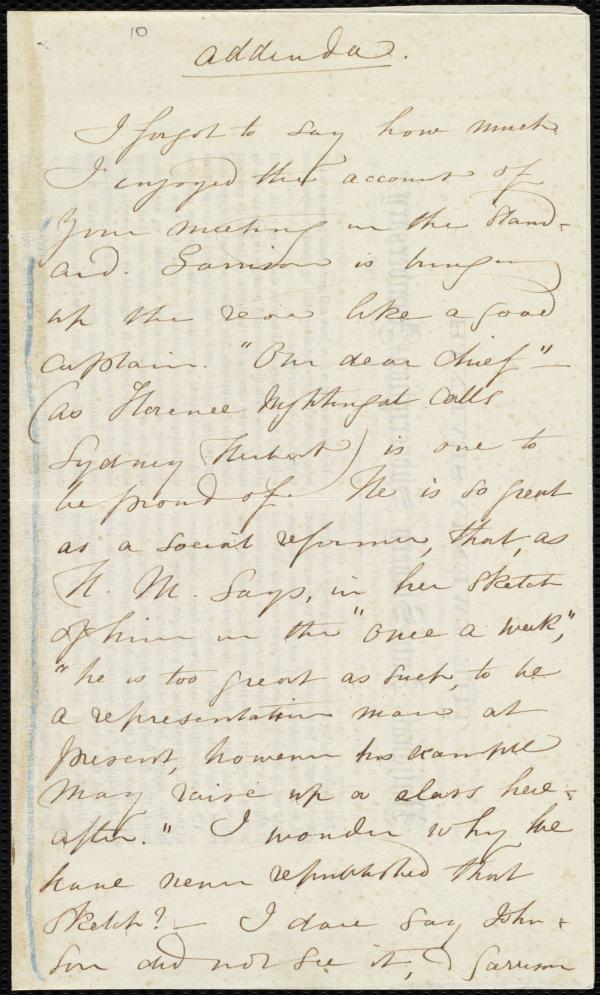 10
addenda.
I forgot to say how much
I enjoyed the account of
your meeting in the Stand-
ard. Garrison is bringing
up the rear like a good
captain. "Our dear chief" -
(as Florence Nightingal calls
Sydney Herbert) is one to
be proud of. He is so great
as a social reformer, that, as
H. M. says, in her sketch
of him in the "once a week,"
"he is too great as such, to be
a representation man at
present, however his example
may raise up a class here-
after." I wonder why we
have never republished that
sketch? - I dare say John-
son did not see it, & Garrison